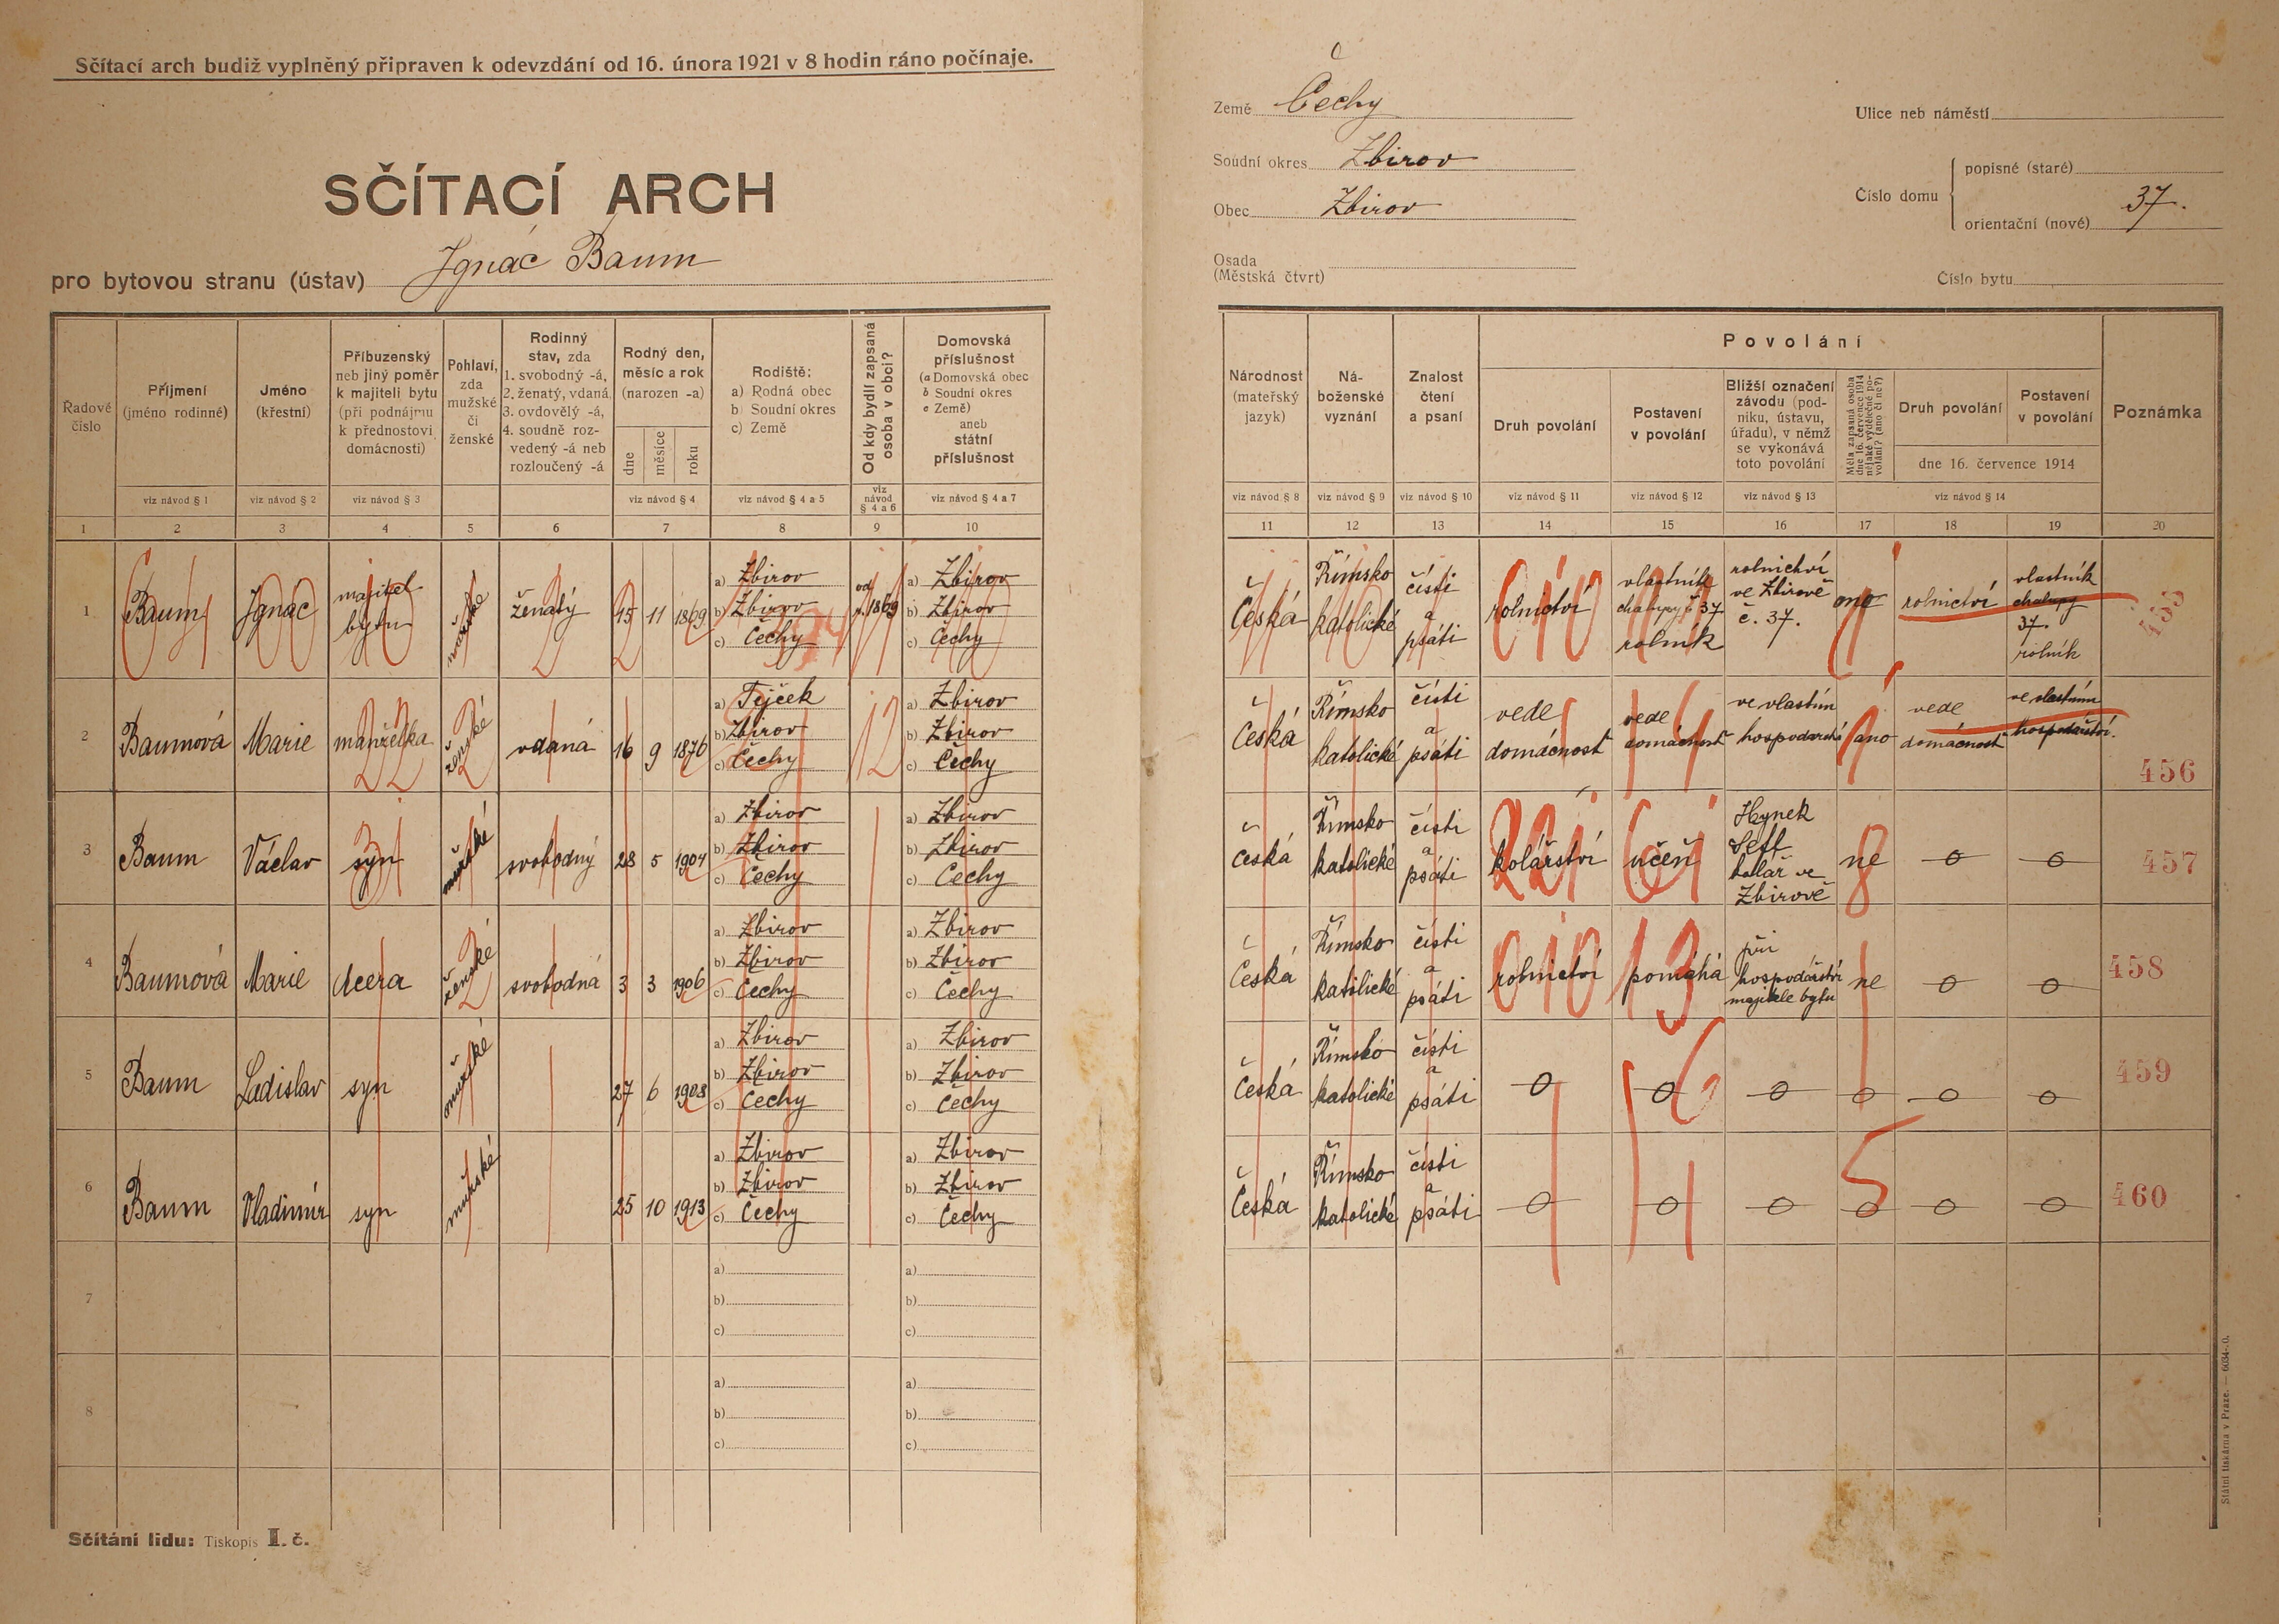 Sčítací arch budiž vyplněný připraven k odevzdání od 16. února 1921 v 8 hodin ráno počínaje.
SČÍTACÍ ARCH
pro bytovou stranu (ústav) Ignác Baum
Země Čechy
Soudní okres Zbirov
Obec Zbirov
Osada
(Městská čtvrt)
Ulice neb náměstí
Číslo domu
popisné (staré)
orientační (nové) 37.
Číslo bytu
Řadové číslo
Příjmení (jméno rodinné)
Jméno (křestní)
Příbuzenský neb jiný poměr k majiteli bytu (při podnájmu k přednostovi domácnosti)
Pohlaví, zda mužské či ženské
Rodinný stav, zda 1. svobodný -á, 2. ženatý, vdaná, 3. ovdovělý -á, 4. soudně rozvedený -á neb rozloučený -á
Rodný den, měsíc a rok (narozen -a)
dne měsíce roku
Rodiště: a) Rodná obec b) Soudní okres c) Země
Od kdy bydlí zapsaná osoba v obci?
Domovská příslušnost (a Domovská obec b Soudní okres c Země) aneb státní příslušnost
viz návod § 1 viz návod § 2 viz návod § 3 viz návod § 4 viz návod § 4 a 5 viz návod § 4 a 6 viz návod § 4 a 7
1 2 3 4 5 6 7 8 9 10
Národnost (mateřský jazyk)
Náboženské vyznání
Znalost čtení a psaní
Povolání
Druh povolání
Postavení v povolání
Bližší označení závodu (podniku, ústavu, úřadu), v němž se vykonává toto povolání
Měla zapsaná osoba dne 16. července 1914 nějaké výdělečné povolání? (ano či ne?)
Druh povolání
Postavení v povolání
dne 16. července 1914
Poznámka
viz návod § 8 viz návod § 9 viz návod § 10 viz návod § 11 viz návod § 12 viz návod § 13 viz návod § 14
11 12 13 14 15 16 17 18 19 20
1 Baum Ignác majitel bytu mužské ženatý 15 11 1869 a) Zbirov b) Zbirov c) Čechy od r. 1869 a) Zbirov b) Zbirov c) Čechy
Česká Římsko katolické čísti a psáti rolnictví vlastník chalupy č 37 rolník rolnictví ve Zbirově č. 37. ano rolnictví vlastník chalupy 37. rolník 455
2 Baumová Marie manželka ženské vdaná 16 9 1876 a) Týček b) Zbirov c) Čechy a) Zbirov b) Zbirov c) Čechy
Česká Římsko katolické čísti a psáti vede domácnosť vede domácnosť ve vlastním hospodářství ano vede domácnosť ve vlastním hospodářství. 456
3 Baum Václav syn mužské svobodný 28 5 1904 a) Zbirov b) Zbirov c) Čechy a) Zbirov b) Zbirov c) Čechy
Česká Římsko katolické čísti a psáti kolářství učeň Hynek kolář ve Zbirově ne 0 0 457
4 Baumová Marie dcera ženské svobodná 3 3 1906 a) Zbirov b) Zbirov c) Čechy a) Zbirov b) Zbirov c) Čechy
Česká Římsko katolické čísti a psáti rolnictví pomáhá při hospodářství majitele bytu ne 0 0 458
5 Baum Ladislav syn mužské 27 6 1908 a) Zbirov b) Zbirov c) Čechy a) Zbirov b) Zbirov c) Čechy
Česká Římsko katolické čísti a psáti 0 0 0 0 0 0 459
6 Baum Vladimír syn mužské 25 10 1913 a) Zbirov b) Zbirov c) Čechy a) Zbirov b) Zbirov c) Čechy
Česká Římsko katolické čísti a psáti 0 0 0 0 0 0 460
7 a) b) c) a) b) c)
8 a) b) c) a) b) c)
Sčítání lidu: Tiskopis I. č.
Státní tiskárna v Praze. — 6034-20.